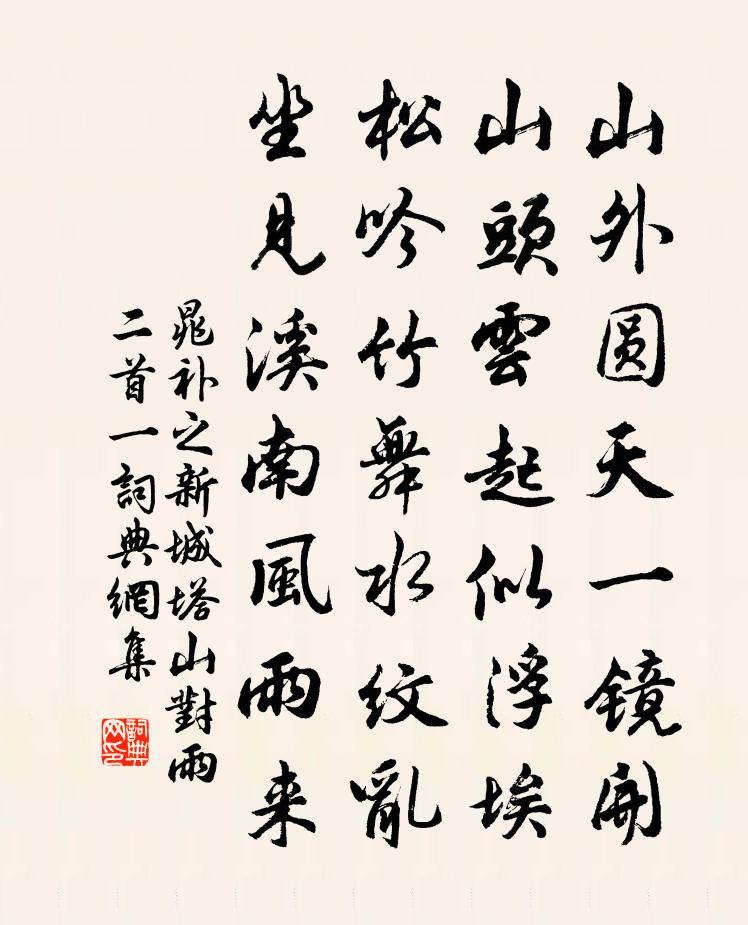 山外圆天一镜開
山頭雲起似浮埃
松吟竹舞水紋亂
坐見溪南風雨来
晁补之新城塔山對雨
二首一詞典網集
詞典
网印